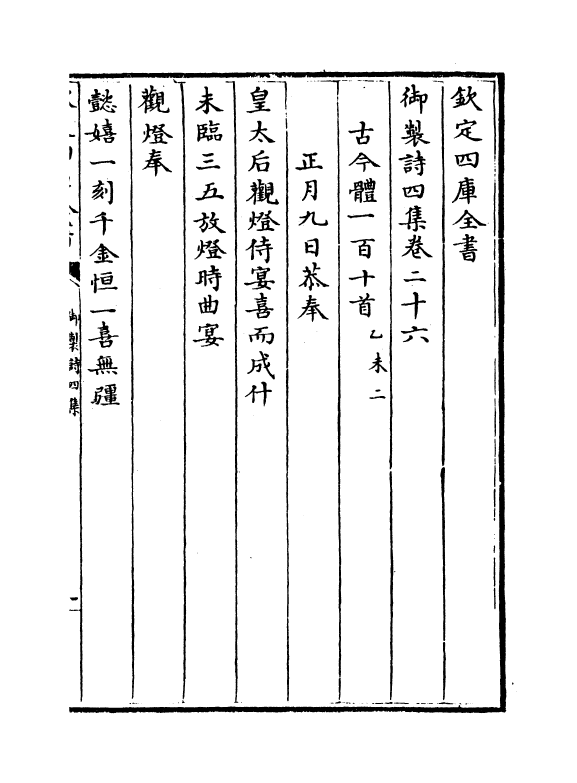 欽定四庫全書
御製詩四集卷二十六
古今體一百十首乙未二
正月九日恭奉
皇太后觀燈侍宴喜而成什
未臨三五放燈時曲宴
觀燈奉
懿嬉一刻千金恒一喜無疆
御製詩四集